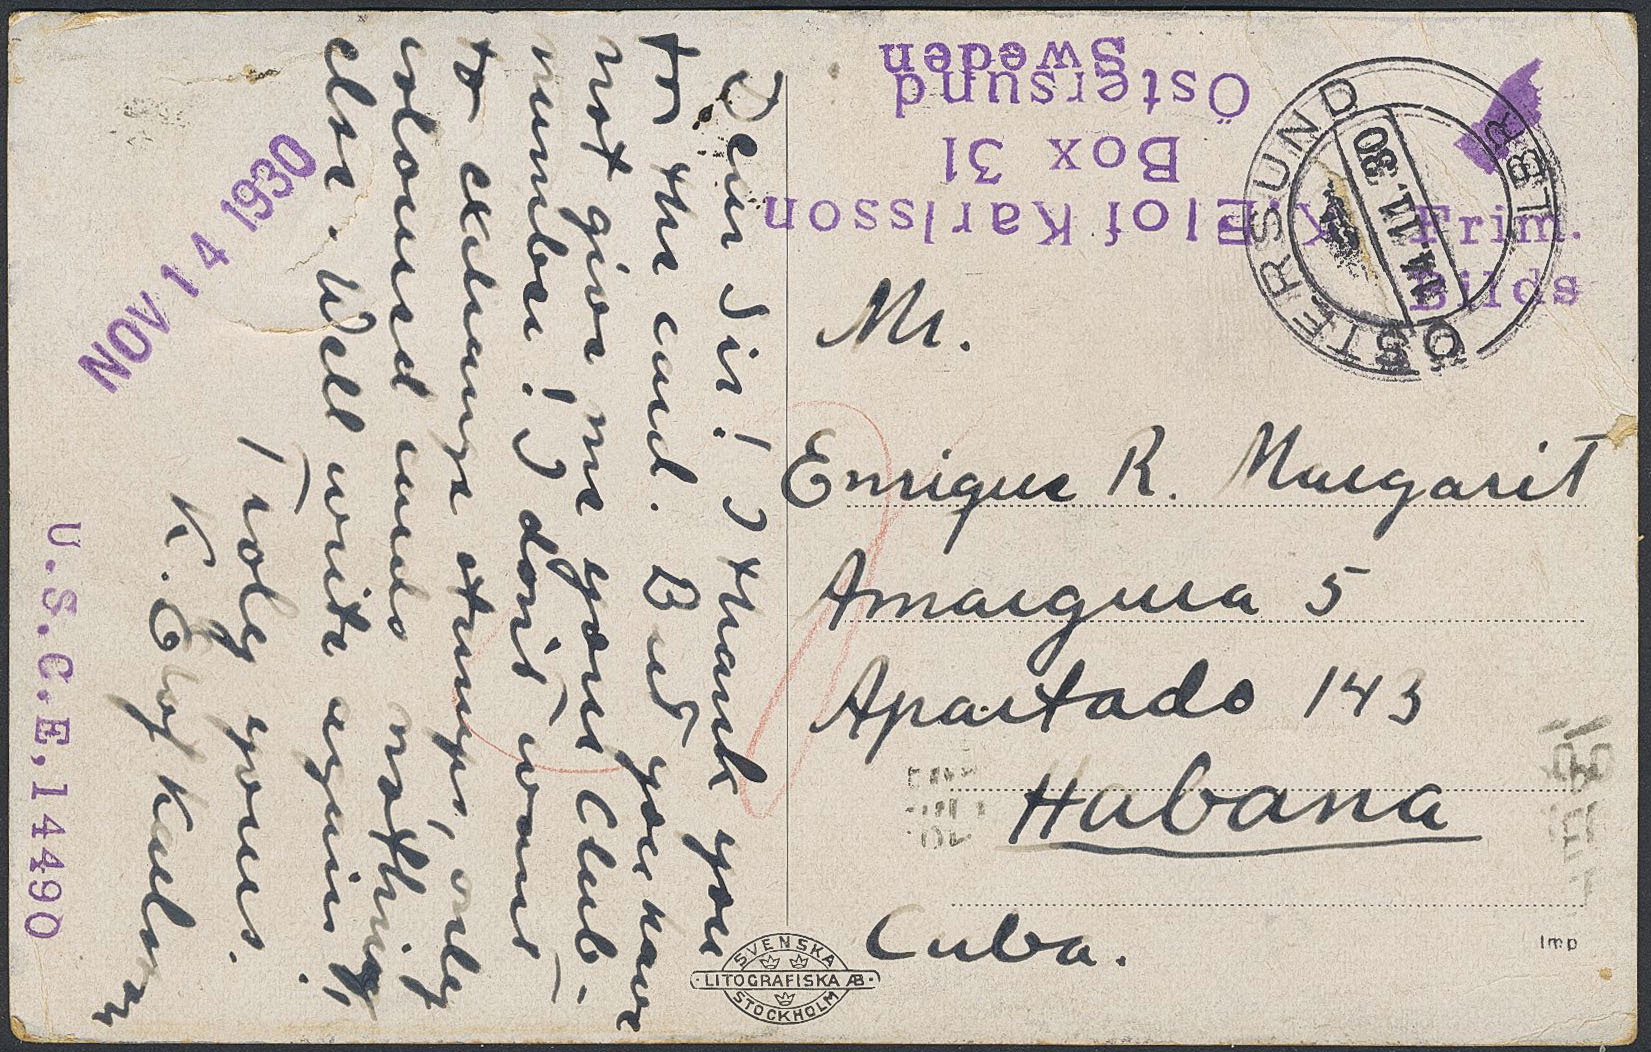 Dear Sir! I thank you
for the card. But you have
not given me your Club-
number! I don't want
to exchange stamps, only
coloured cards nothing
else. Well write again!
Truly yours.
K. Elof Karlsson
NOV 14 1930
U.S.C.E, 14490
K. Elof Karlsson
Box 31
Östersund
Sweden
ÖSTERSUND
14.11.30
LBR
Frim.
Bilds
Mr.
Enrique R. Margarit
Amargura 5
Apartado 143
Habana
Cuba.
SVENSKA
LITOGRAFISKA AB
STOCKHOLM
Imp